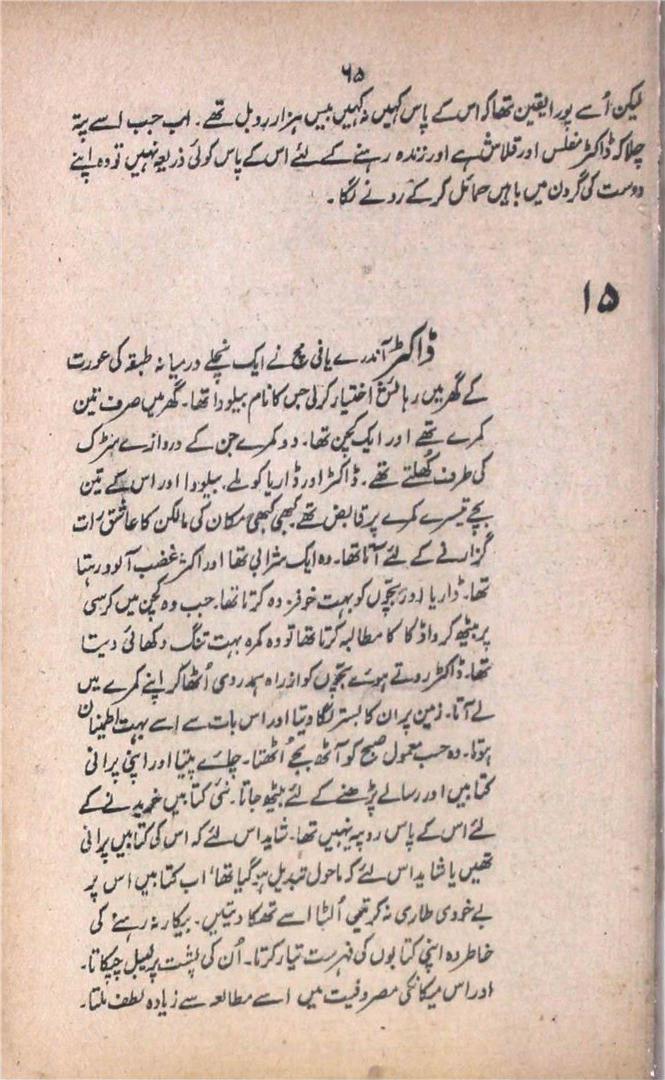 ۶۵
لیکن اُسے پورا یقین تھا کہ اس کے پاس کہیں نہ کہیں بیس ہزار روبل تھے۔ اب جب اسے پتہ
چلا کہ ڈاکٹر مفلس اور قلاش ہے اور زندہ رہنے کے لئے اس کے پاس کوئی ذریعہ نہیں تو وہ اپنے
دوست کی گردن میں باہیں حمائل کر کے رونے لگا۔
۱۵
ڈاکٹر آندرے یافی مچ نے ایک نچلے درمیانہ طبقہ کی عورت
کے گھر میں رہائش اختیار کر لی جس کا نام بیلودا تھا۔ گھر میں صرف تین
کمرے تھے اور ایک کچن تھا۔ دو کمرے جن کے دروازے سڑک
کی طرف کُھلتے تھے۔ ڈاکٹر اور ڈاریا کو ملے۔ بیلودا اور اس کے تین
بچے تیسرے کمرے پر قابض تھے کبھی کبھی مکان کی مالکن کا عاشق رات
گزارنے کے لئے آتا تھا۔ وہ ایک شرابی تھا اور اکثر غضب آلود رہتا
تھا۔ ڈاریا اور بچّوں کو بہت خوفزدہ کرتا تھا۔ جب وہ کچن میں کرسی
پر بیٹھ کر واڈکا کا مطالبہ کرتا تھا تو وہ کمرہ بہت تنگ دکھائی دیتا
تھا۔ ڈاکٹر روتے ہوئے بچّوں کو ازراہ ہمدردی اُٹھا کر اپنے کمرے میں
لے آتا۔ زمین پر ان کا بستر لگا دیتا اور اس بات سے اسے بہت اطمینان
ہوتا۔ وہ حسب معمول صبح کو آٹھ بجے اُٹھتا۔ چائے پیتا اور اپنی پرانی
کتابیں اور رسالے پڑھنے کے لئے بیٹھ جاتا۔ نئی کتابیں خریدنے کے
لئے اس کے پاس روپیہ نہیں تھا۔ شاید اس لئے کہ اس کی کتابیں پرانی
تھیں یا شاید اس لئے کہ ماحول تبدیل ہو گیا تھا، اب کتابیں اس پر
بے خودی طاری نہ کرتیں اُلٹا اسے تھکا دیتیں۔ بیکار نہ رہنے کی
خاطر وہ اپنی کتابوں کی فہرست تیار کرتا۔ اُن کی پشت پر لیبل چپکاتا۔
اور اس میکانکی مصروفیت میں اسے مطالعہ سے زیادہ لطف ملتا۔